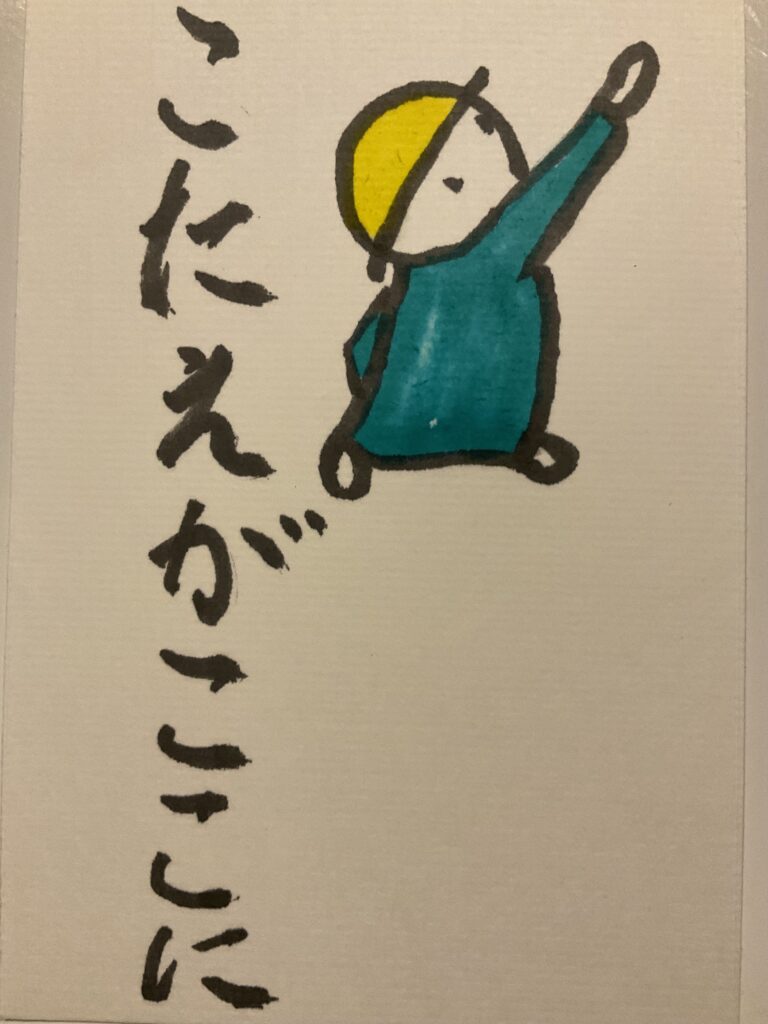 こたえがここに